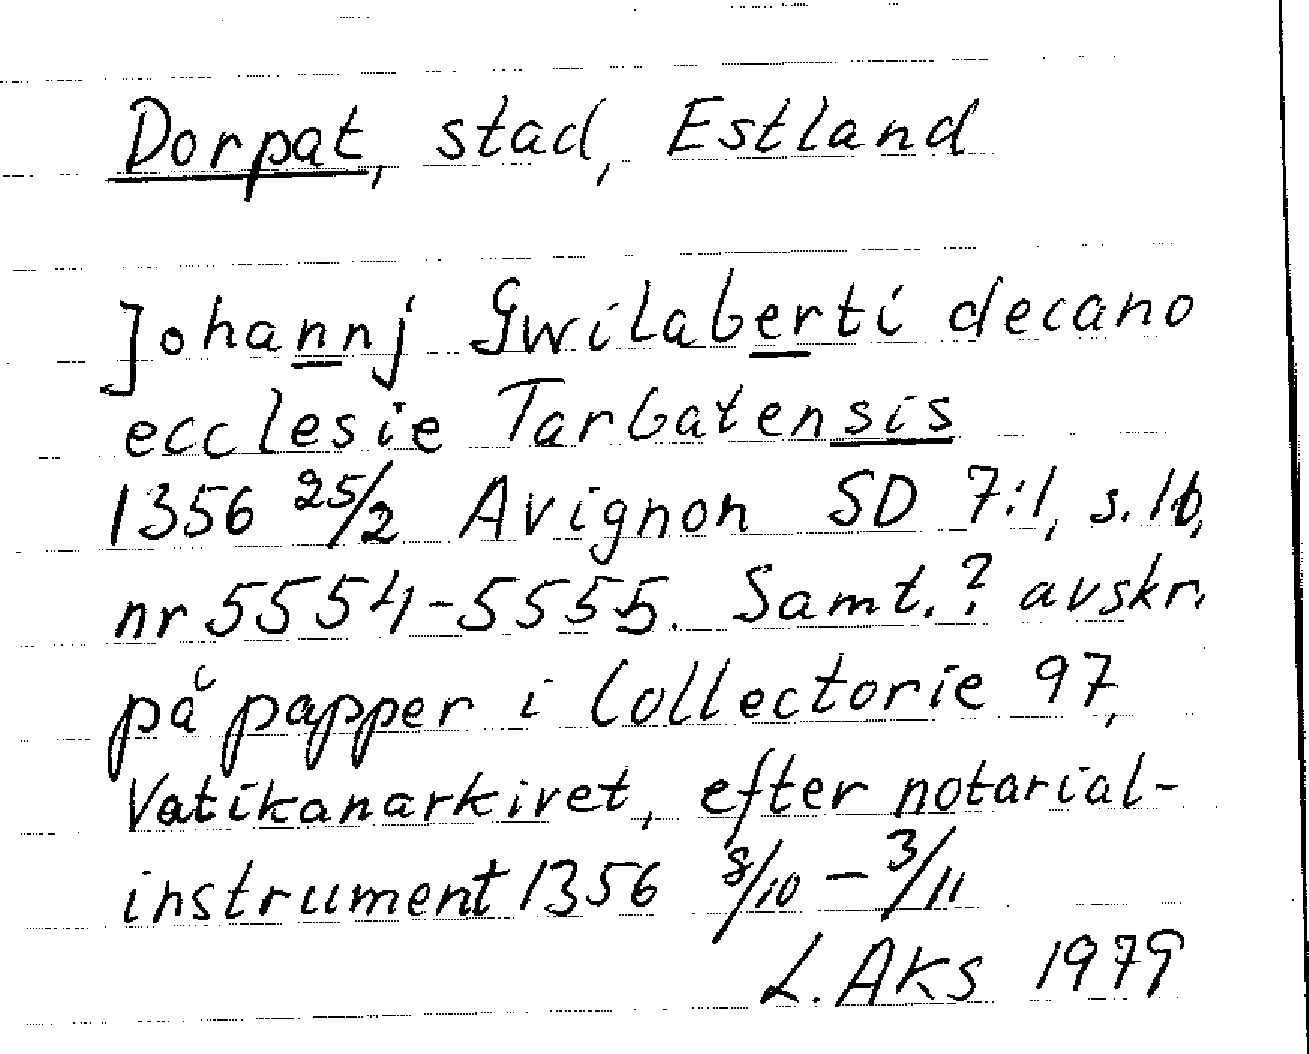 Dorpat, stad, Estland
Johannj Gwilaberti decano
ecclesie Tarbatensis
1356 25/2 Avignon SD 7:1, s. 16,
nr 5554-5555. Samt.? avskr.
på papper i Collectorie 97,
Vatikanarkivet, efter notarial-
instrument 1356 8/10 - 3/11
L. Aks 1979